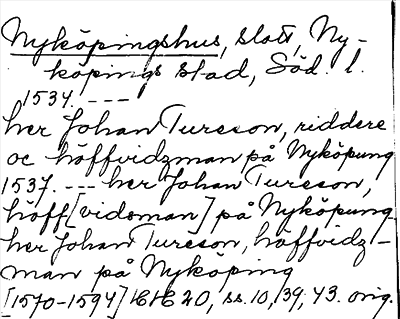 Nyköpingshus, slott, Ny-
köpings stad, Söd. l.
1534. ---
her Johan Tureson, riddere
oc höffvidzman på Nyköpung
1537. --- her Johan Tureson,
höff[vidsman] på Nyköpung
her Johan Tureson, höffvidz-
man på Nyköping
[1570-1594] 20, ss. 10, 39, 43. orig.